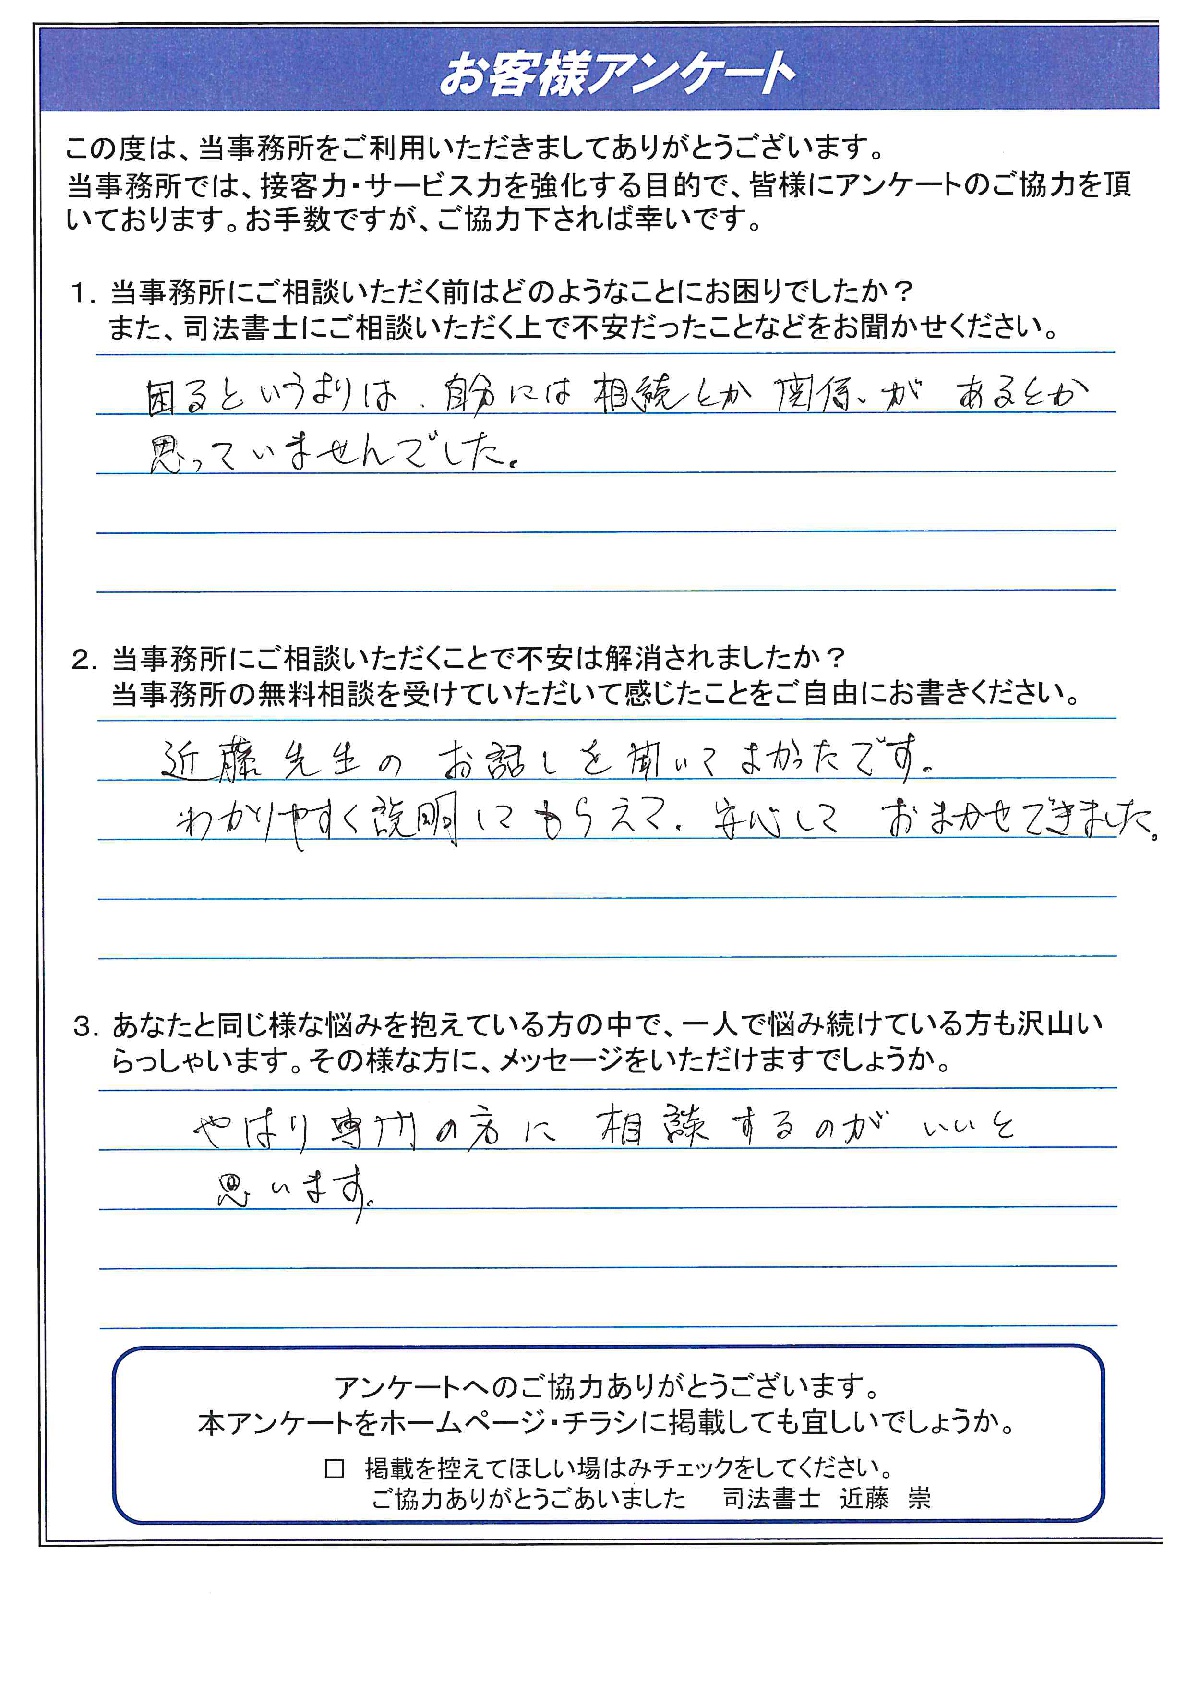 お客様アンケート
この度は、当事務所をご利用いただきましてありがとうございます。
当事務所では、接客力・サービス力を強化する目的で、皆様にアンケートのご協力を頂
いております。お手数ですが、ご協力下されば幸いです。
1. 当事務所にご相談いただく前はどのようなことにお困りでしたか？
また、司法書士にご相談いただく上で不安だったことなどをお聞かせください。
困るというよりは、自分には相続とか関係があるとか
思っていませんでした。
2. 当事務所にご相談いただくことで不安は解消されましたか？
当事務所の無料相談を受けていただいて感じたことをご自由にお書きください。
近藤先生のお話しを聞いてよかったです。
わかりやすく説明してもらえて、安心しておまかせできました。
3. あなたと同じ様な悩みを抱えている方の中で、一人で悩み続けている方も沢山い
らっしゃいます。その様な方に、メッセージをいただけますでしょうか。
やはり専門の方に相談するのがいいと
思います。
アンケートへのご協力ありがとうございます。
本アンケートをホームページ・チラシに掲載しても宜しいでしょうか。
□ 掲載を控えてほしい場はみチェックをしてください。
ご協力ありがとうごあいました 司法書士 近藤 崇